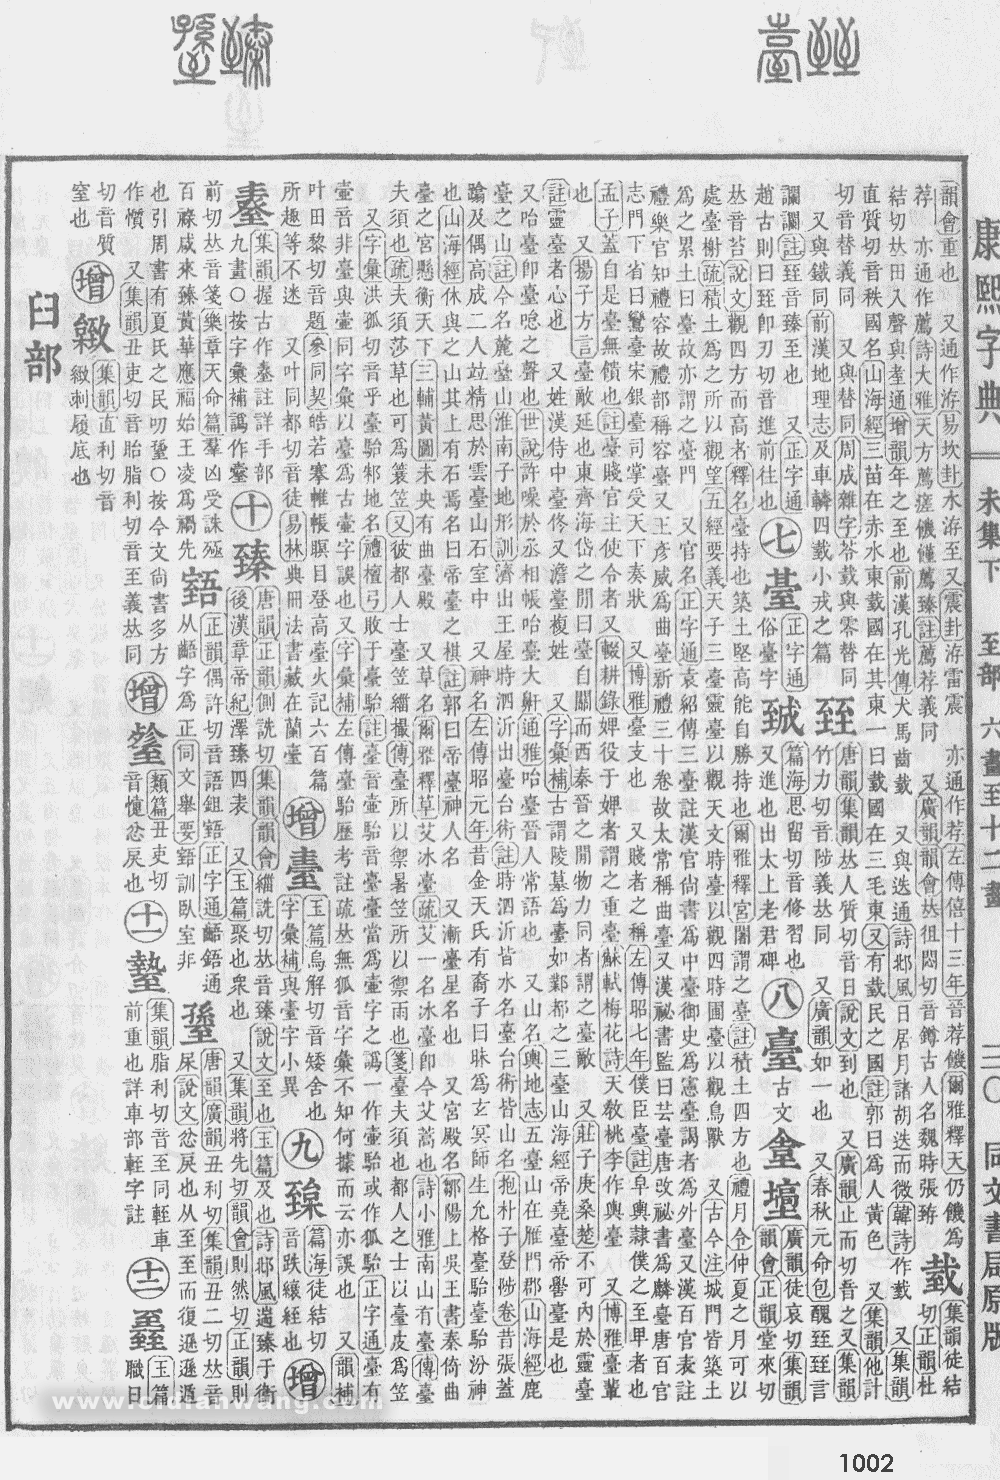 康熙字典 未集下 至部 六畫至十二畫 一三〇 同文書局原版
韻會重也 又通作洊易坎卦水洊至又震卦洊雷震 亦通作荐左傳僖十三年晉荐饑爾雅釋天仍饑爲
荐 亦通作薦詩大雅天方薦瘥饑饉薦臻註薦荐義同 又廣韻韻會𠀤徂悶切音鐏古人名魏時張臶
臷
集韻徒結
切正韻杜
結切𠀤田入聲與耊通增韻年之至也前漢孔光傳犬馬齒臷 又與迭通詩邶風日居月諸胡迭而微韓詩作臷 又集韻
直質切音秩國名山海經三苗在赤水東臷國在其東一曰臷國在三毛東又有臷民之國註郭曰爲人黃色 又集韻他計
切音替義同 又與替同周成雜字苶臷與零替同
又與鐵同前漢地理志及車轔四臷小戎之篇
臸
唐韻集韻𠀤人質切音日說文到也 又廣韻止而切音之又集韻
竹力切音陟義𠀤同 又廣韻如一也 又春秋元命包醜臸臸言
讕讕註臸音臻至也 又正字通
趙古則曰臸卽刃切音進前往也
㊆
臺
正字通
俗臺字
䑓
篇海思畱切音修習也
又進也出太上老君碑
㊇
臺
古文
坮
𡌬
廣韻徒哀切集韻
韻會正韻堂來切
𠀤音苔說文觀四方而高者釋名臺持也築土堅高能自勝持也爾雅釋宮闍謂之臺註積土四方也禮月令仲夏之月可以
處臺榭疏積土爲之所以觀望五經要義天子三臺靈臺以觀天文時臺以觀四時囿臺以觀鳥獸 又古今注城門皆築土
爲之累土曰臺故亦謂之臺門 又官名正字通袁紹傳三臺註漢官尚書爲中臺御史爲憲臺謁者爲外臺又漢百官表註
禮樂官知禮容故禮部稱容臺又王彥威爲曲臺新禮三十卷故太常稱曲臺又漢祕書監曰芸臺唐改祕書爲麟臺唐百官
志門下省曰鸞臺宋銀臺司掌受天下奏狀 又博雅臺支也 又賤者之稱左傳昭七年僕臣臺註皁輿隸僕之至𤰞者也
孟子蓋自是臺無餽也註臺賤官主使令者又輟耕錄婢役于婢者謂之重臺蘇軾梅花詩天敎桃李作輿臺 又博雅臺輩也
也 又揚子方言臺敵延也東齊海岱之閒曰臺自關而西秦晉之閒物力同者謂之臺敵 又莊子庚桑楚不可內於靈臺
註靈臺者心也 又姓漢侍中臺佟又澹臺複姓 又字彙補古謂陵墓爲臺如鄴都之三臺山海經帝堯臺帝嚳臺是也
又咍臺卽臺唸之聲也世說許噪於丞相帳咍臺大鼾通雅咍臺晉人常語也 又山名輿地志五臺山在雁門郡山海經鹿
臺之山註今名麓臺山淮南子地形訓濟出王屋時泗沂出臺台術註時泗沂皆水名臺台術皆山名抱朴子登陟卷昔張蓋
蹹及偶高成二人竝精思於雲臺山石室中 又神名左傳昭元年昔金天氏有裔子曰昧爲玄冥師生允格臺駘臺駘汾神
也山海經休與之山其上有石焉名曰帝臺之棋註郭曰帝臺神人名 又漸臺星名也 又宮殿名鄒陽上吳王書秦倚曲
臺之宮懸衡天下三輔黃圖未央有曲臺殿 又草名爾雅釋草艾冰臺疏艾一名冰臺卽今艾蒿也詩小雅南山有臺傳臺
夫須也疏夫須莎草也可爲簑笠又彼都人士臺笠緇撮傳臺所以禦暑笠所以禦雨也箋臺夫須也都人之士以臺皮爲笠
又字彙洪孤切音乎臺駘邾地名禮檀弓敗于臺駘註臺音壷駘音臺臺當爲壷字之譌一作壷駘或作狐駘正字通臺有
壷音非臺與壷同字彙以臺爲古壷字誤也又字彙補左傳臺駘歷考註疏𠀤無狐音字彙不知何據而云亦誤也 又韻補
叶田黎切音題參同契皓若褰帷帳瞑目登高臺火記六百篇
所趣等不迷 又叶同都切音徒易林典冊法書藏在蘭臺
㊉
臻
唐韻正韻側詵切集韻韻會緇詵切𠀤音臻說文至也玉篇及也詩邶風遄臻于衞
後漢章帝紀澤臻四表 又玉篇聚也衆也 又集韻將先切韻會則然切正韻則
前切𠀤音箋樂章天命篇羣凶受誅殛
百祿咸來臻黃華應福始王凌爲禍先
正韻偶許切音語鉏䥏正字通齬䥏通
从齬字爲正同文舉要䥏訓臥室非
唐韻廣韻丑利切集韻丑二切𠀤音
㞘說文忿戾也从至至而復遜遜遁
也引周書有夏氏之民叨𡐧〇按今文尚書多方
作懫 又集韻丑吏切音胎脂利切音至義𠀤同
增
類篇丑吏切
音懥忿戾也
㊉一
集韻脂利切音至同輊車
前重也詳車部輊字註
㊉二
臸
玉篇
職日
切音質
室也
增
緻
集韻直利切音
緻刺履底也
臼部
www.cidianwang.com
1002